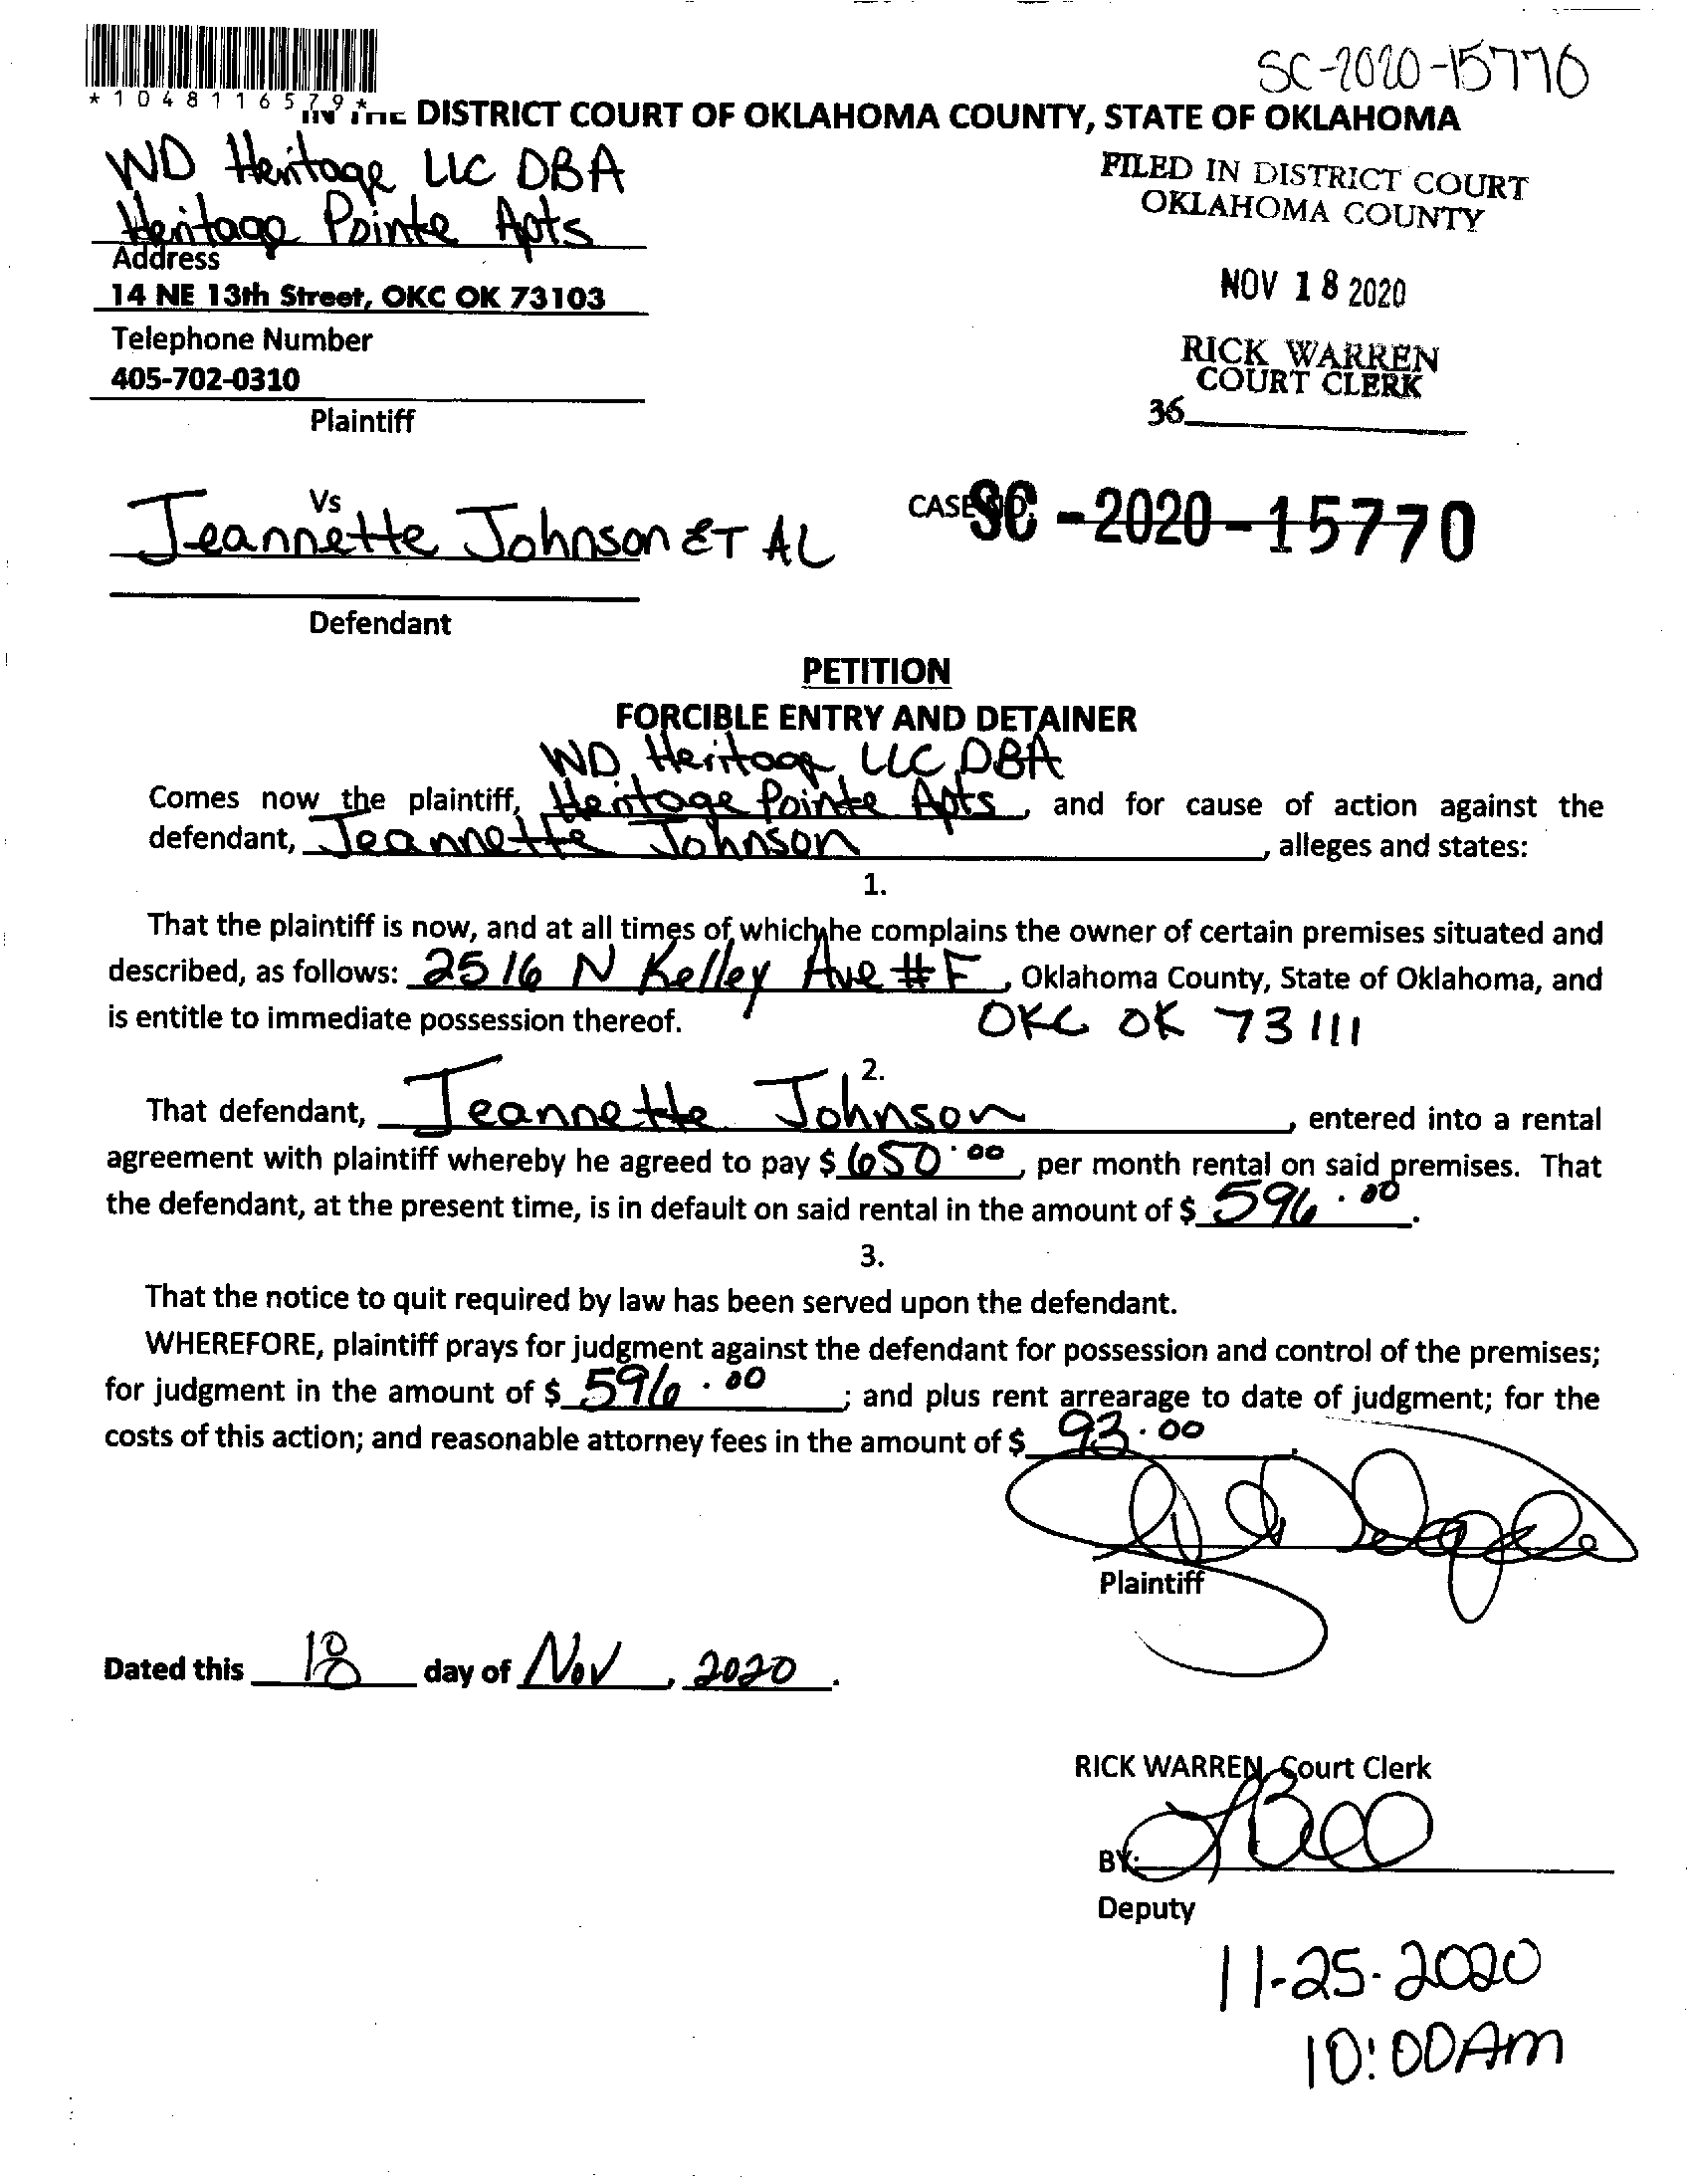 SC-2020-15770
*1048116579*
IN THE DISTRICT COURT OF OKLAHOMA COUNTY, STATE OF OKLAHOMA
WD Heritage LLC DBA
Heritage Pointe Apts
Address
14 NE 13th Street, OKC OK 73103
Telephone Number
405-702-0310
Plaintiff
FILED IN DISTRICT COURT
OKLAHOMA COUNTY
NOV 18 2020
RICK WARREN
COURT CLERK
36
Vs
Jeannette Johnson ET AL
Defendant
CASE NO. SC-2020-15770
PETITION
FORCIBLE ENTRY AND DETAINER
WD Heritage LLC DBA
Comes now the plaintiff, Heritage Pointe Apts, and for cause of action against the
defendant, Jeannette Johnson, alleges and states:
1.
That the plaintiff is now, and at all times of which he complains the owner of certain premises situated and
described, as follows: 2516 N Kelley Ave #F, Oklahoma County, State of Oklahoma, and
is entitle to immediate possession thereof. OKC OK 73111
2.
That defendant, Jeannette Johnson, entered into a rental
agreement with plaintiff whereby he agreed to pay $ 650.00, per month rental on said premises. That
the defendant, at the present time, is in default on said rental in the amount of $ 596.00.
3.
That the notice to quit required by law has been served upon the defendant.
WHEREFORE, plaintiff prays for judgment against the defendant for possession and control of the premises;
for judgment in the amount of $ 596.00; and plus rent arrearage to date of judgment; for the
costs of this action; and reasonable attorney fees in the amount of $ 93.00.
Plaintiff
Dated this 18 day of Nov, 2020.
RICK WARREN, Court Clerk
BY:
Deputy
11-25-2020
10:00AM